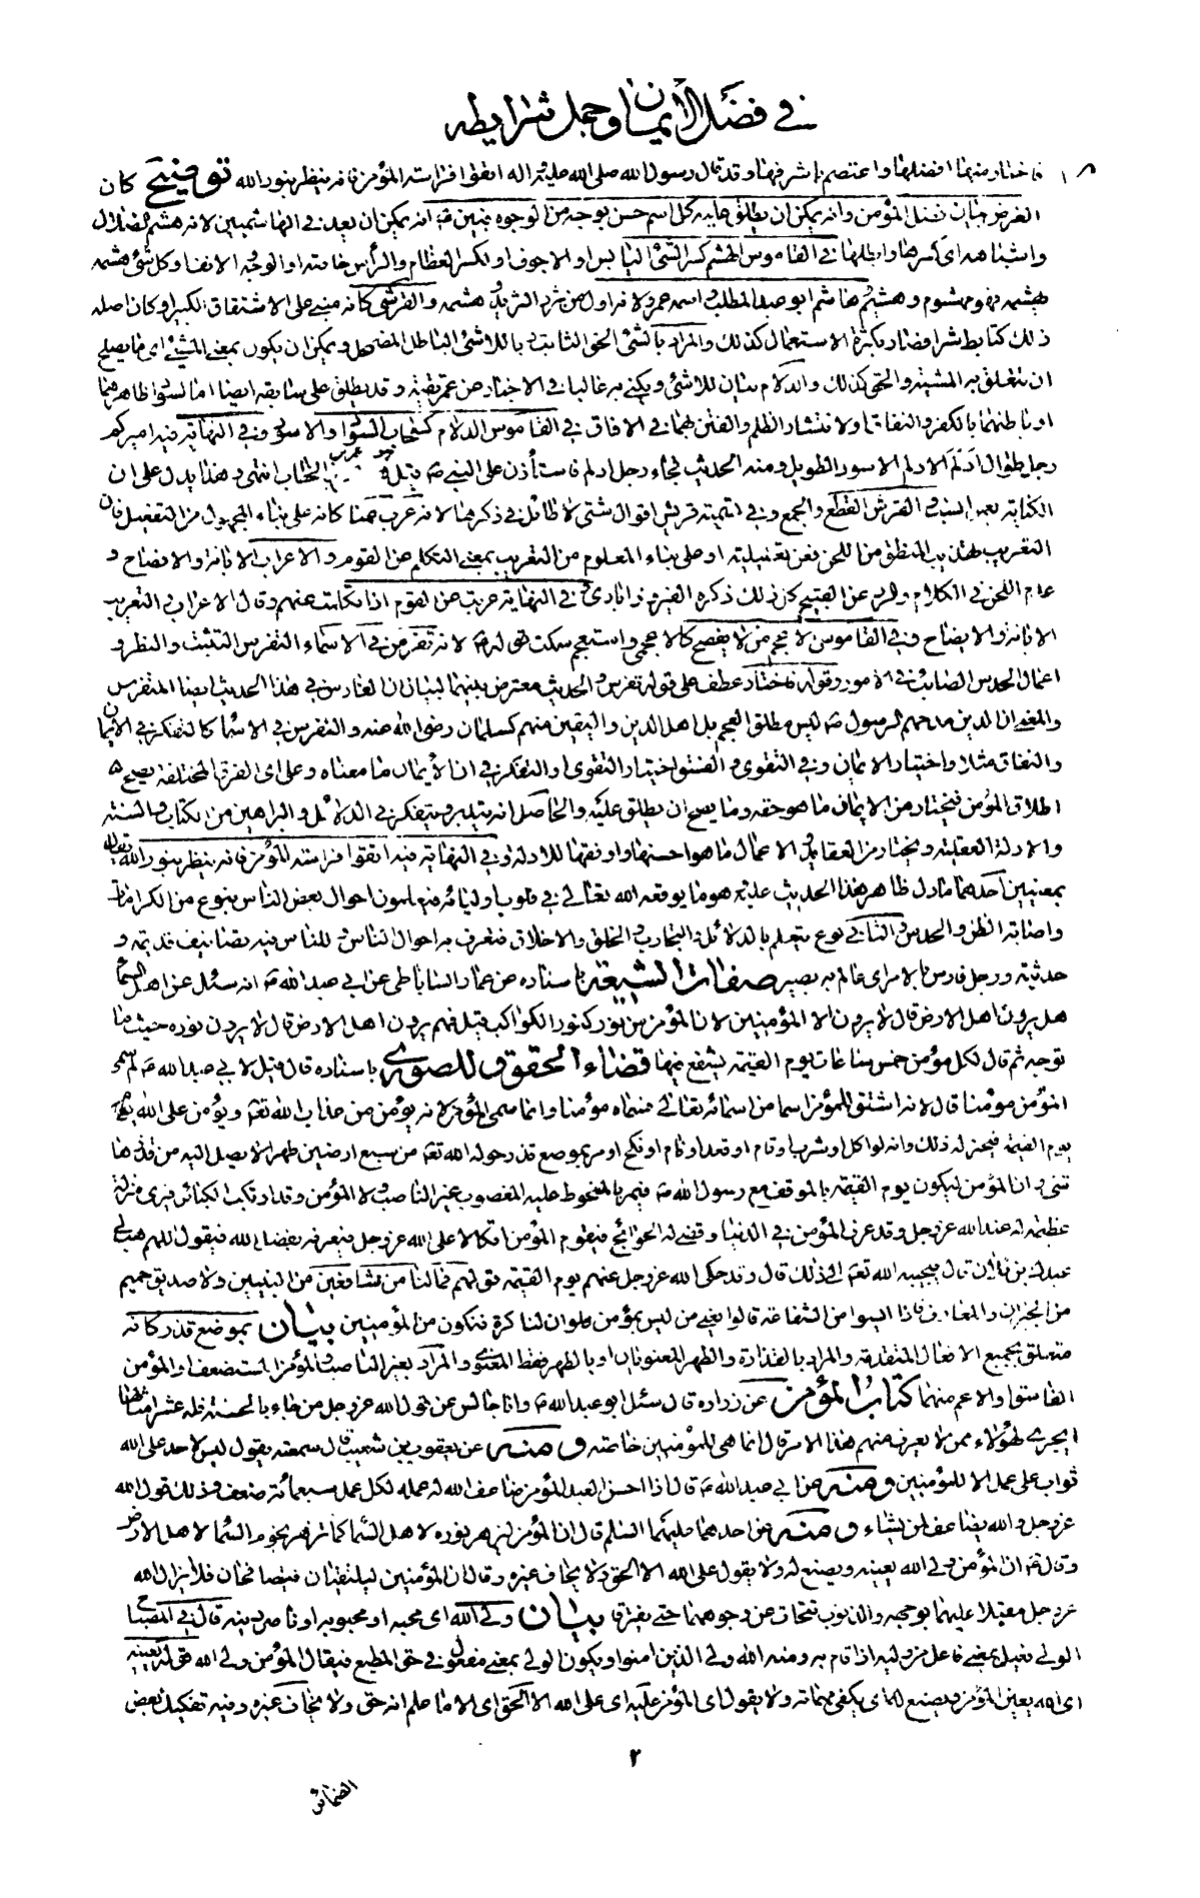 في فضل الإيمان وجمل شرايطه
فاختار منها افضلها واعتصم باشرفها وقد قال رسول الله صلى الله عليه واله اتقوا فراسة المؤمن فانه ينظر بنور الله توضيح كان
الغرض بيان فضل المؤمن وانه يمكن ان يطلق عليه كل اسم حسن بوجه من الوجوه فبين ع انه يمكن ان يعد في الهاشميين لانه هشم الضلال
واشباهه اى كسرها وابطلها في القاموس الهشم كسر الشئ اليابس او الاجوف او كسر العظام والرأس خاصة او الوجه والانف او كل شئ هشمه
يهشمه فهو مهشوم وهشيم وهاشم ابو عبد المطلب واسمه عمرو لانه اول من ثرد الثريد وهشمه والقرشى كانه مبني على الاشتقاق الكبير او كان اصله
ذلك كتابط شرا فصار بكثرة الاستعمال كذلك والمراد بالشئ الحق الثابت وباللاشئ الباطل المضمحل ويمكن ان يكون بمعنى المشيئ اى ما يصلح
ان تتعلق به المشية والحق كذلك واللام بيان للاشئ ويكنى به غالبا في الاخبار عن عمر وقد يطلق على صاحبه ايضا اما لسواد ظاهرهما
او باطنهما بالكفر والنفاق او لانتشار الظلم والفتن بهما في الافاق في القاموس الدلام كسحاب السواد او الاسود وفي النهاية فيه اميركم
رجل طوال ادلم الادلم الاسود الطويل ومنه الحديث فجاء رجل ادلم فاستأذن على النبي ص قيل هو عمر بن الخطاب انتهى وهذا يدل على ان
الكناية بعمر انسب والقرش القطع والجمع وفي تسمية قريش اقوال شتى لا طائل في ذكرها لانه عرب عنا كانه على بناء المجهول من التفعيل فان
التعريب تهذيب المنطق من اللحن فعن تعليلية او على بناء المعلوم من التعريب بمعنى التكلم عن القوم والاعراب الابانة والافصاح و
عدم اللحن في الكلام والرد عن القبيح كل ذلك ذكره الفيروزابادى في النهاية عربت عن القوم اذا تكلمت عنهم وقال الاعراب والتعريب
الابانة والايضاح وفي القاموس الاعجم من لا يفصح كالاعجمى واستعجم سكت قوله لانه تفرس في الاسماء التفرس التثبت والنظر و
اعمال الحدس الصائب في الامور وقوله فاختار عطف على قوله تفرس والحديث معترض بينهما لبيان ان الفارس في هذا الحديث ايضا المتفرس
والمعنى ان الذين مدحهم الرسول ص ليس مطلق العجم بل اهل الدين واليقين منهم كسلمان رضى الله عنه والتفرس في الاسماء كالتفكر في الايمان
والنفاق مثلا واختيار الايمان وفي التقوى والفسق واختيار التقوى او التفكر في ان الايمان ما معناه وعلى اى الفرق المختلفة يصح
اطلاق المؤمن فيختار من الايمان ما هو حقه وما يصح ان يطلق عليه والحاصل انه يتدبر ويتفكر في الدلائل والبراهين من الكتاب والسنة
والادلة العقلية ويختار من العقايد والاعمال ما هو احسنها واوفقها للادلة وفي النهاية فيه اتقوا فراسة المؤمن فانه ينظر بنور الله يقال
بمعنيين احدهما ما دل ظاهر هذا الحديث عليه هو ما يوقعه الله تعالى في قلوب اوليائه فيعلمون احوال بعض الناس بنوع من الكرامات
واصابة الظن والحدس والثاني نوع يتعلم بالدلائل والتجارب والخلق والاخلاق فتعرف به احوال الناس وللناس فيه تصانيف قديمة و
حديثة ورجل فارس بالامر اى عالم به بصير صفات الشيعة باسناده عن عمار الساباطي عن ابي عبد الله ع انه سئل عن اهل السماء
هل يرون اهل الارض قال لا يرون الا المؤمنين لان المؤمن من نور كنور الكواكب قيل فهم يرون اهل الارض قال لا يرون نوره حيث ما
توجه ثم قال لكل مؤمن خمس ساعات يوم القيمة يشفع فيها قضاء الحقوق للصوري باسناده قال قيل لابي عبد الله ع لم سمى
المؤمن مؤمنا قال لانه اشتق للمؤمن اسما من اسمائه تعالى فسماه مؤمنا وانما سمى المؤمن لانه يؤمن من عذاب الله تعه ويؤمن على الله
يوم القيمة فيجيز له ذلك وانه لو اكل او شرب او قام او قعد او نام او نكح او مر بموضع قذر حوله الله تعه من سبع ارضين طهرا لا يصل اليه من قذرها
شئ وان المؤمن ليكون يوم القيمة بالموقف مع رسول الله ص فيمر بالمسخوط عليه المغصوب غير الناصب ولا المؤمن وقد ارتكب الكبائر فيرى منزلة
عظيمة له عند الله عز وجل وقد عرف المؤمن في الدنيا وقضى له الحوائج فيقوم المؤمن اتكالا على الله عز وجل فيعرفه بفضل الله فيقول اللهم هب لي
عبدك بن فلان قال فيجيبه الله تعه الى ذلك قال وقد حكى الله عز وجل عنهم يوم القيمة قولهم فمالنا من شافعين من النبيين ولا صديق حميم
من الجيران والمعارف فاذا ايسوا من الشفاعة قالوا يعني من ليس بمؤمن فلو ان لنا كرة فنكون من المؤمنين بيان بموضع قذر كانه
متعلق بجميع الافعال المتقدمة والمراد بالقذارة والطهر المعنويان او بالطهر فقط المعنوى والمراد بغير الناصب والمؤمن المستضعف او المؤمن
الفاسق او الاعم منهما كتاب المؤمن عن زرارة قال سئل ابو عبد الله ع وانا جالس عن قول الله عز وجل من جاء بالحسنة فله عشر امثالها
ايجرى لهؤلاء ممن لا يعرف منهم هذا الامر قال انما هى للمؤمنين خاصة ومنه عن يعقوب بن شعيب قال سمعته يقول ليس لاحد على الله
ثواب على عمل الا للمؤمنين ومنه عن ابي عبد الله ع قال اذا احسن العبد المؤمن ضاعف الله له عمله لكل عمل سبعمائة ضعف وذلك قول الله
عز وجل والله يضاعف لمن يشاء ومنه عن احدهما عليهما السلم قال ان المؤمن ليزهر نوره لاهل السماء كما تزهر نجوم السماء لاهل الارض
وقال ع ان المؤمن ولى الله يعينه ويصنع له ولا يقول على الله الا الحق ولا يخاف غيره وقال ان المؤمنين ليلتقيان فيتصافحان فلا يزال الله
عز وجل مقبلا عليهما بوجهه والذنوب تتحات عن وجوههما حتى يفترقا بيان ولى الله اى محبه او محبوبه او ناصر دينه قال في المصباح
الولى فعيل بمعنى فاعل من وليه اذا قام به ومنه الله ولى الذين امنوا ويكون الولى بمعنى مفعول في حق المطيع فيقال المؤمن ولى الله قوله يعينه
اى الله يعين المؤمن ويصنع له اى يكفى مهماته ولا يقول اى المؤمن على الله اى على الله الا الحق اى الا ما علم انه حق ولا يخاف غيره وفيه تفكيك بعض
٢
الضمائر